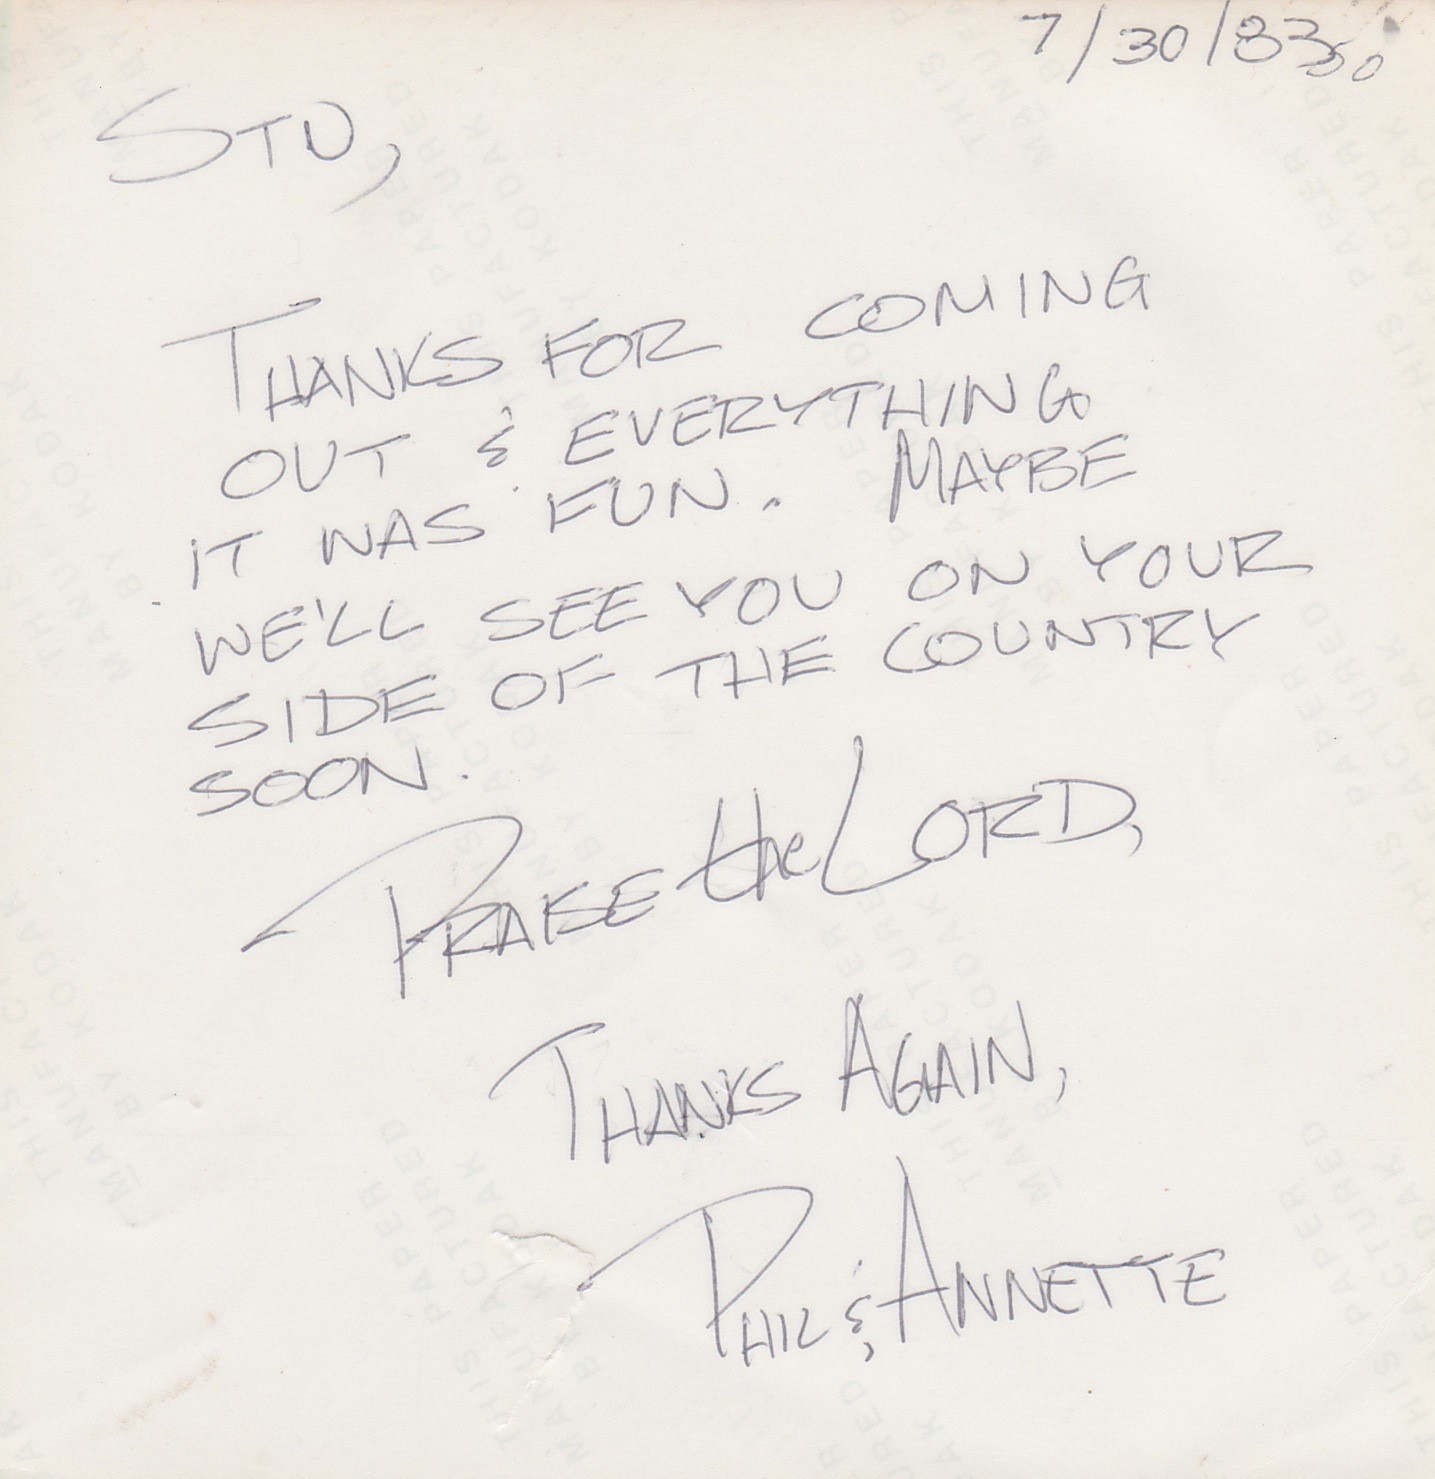 7/30/83
STU,
THANKS FOR COMING
OUT & EVERYTHING
IT WAS FUN. MAYBE
WE'LL SEE YOU ON YOUR
SIDE OF THE COUNTRY
SOON.
PRAISE the LORD,
THANKS AGAIN,
PHIL & ANNETTE
THIS PAPER
MANUFACTURED
BY KODAK